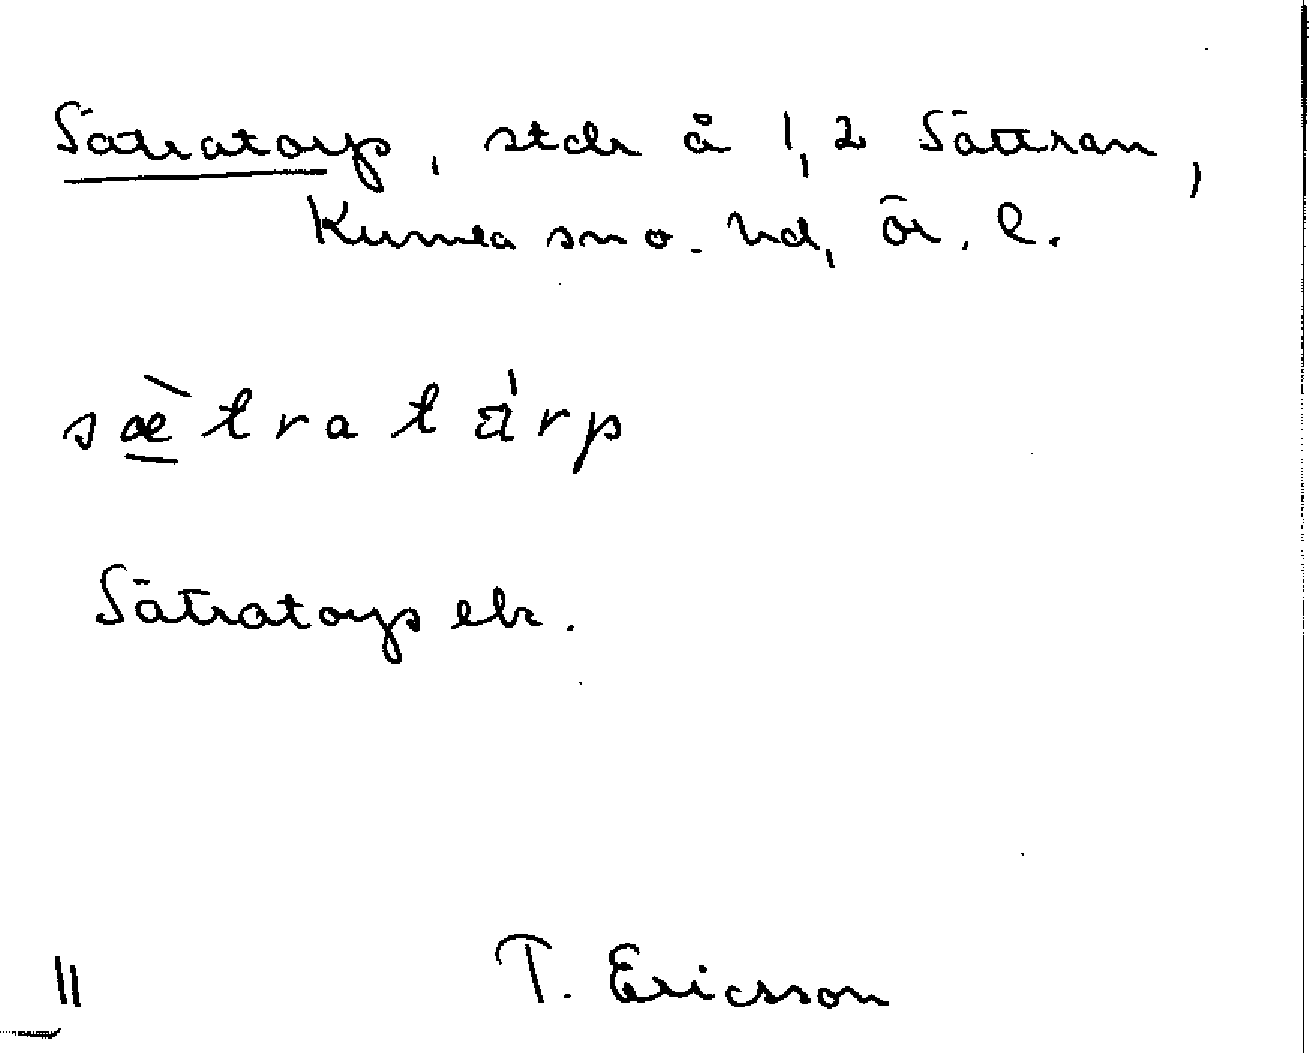 Sätratorp, stdr å 1,2 Sättran,
Kumla sn o. hd, Ör. l.
sæ̀tratàrp
Sätratorp ek.
11
T. Ericson